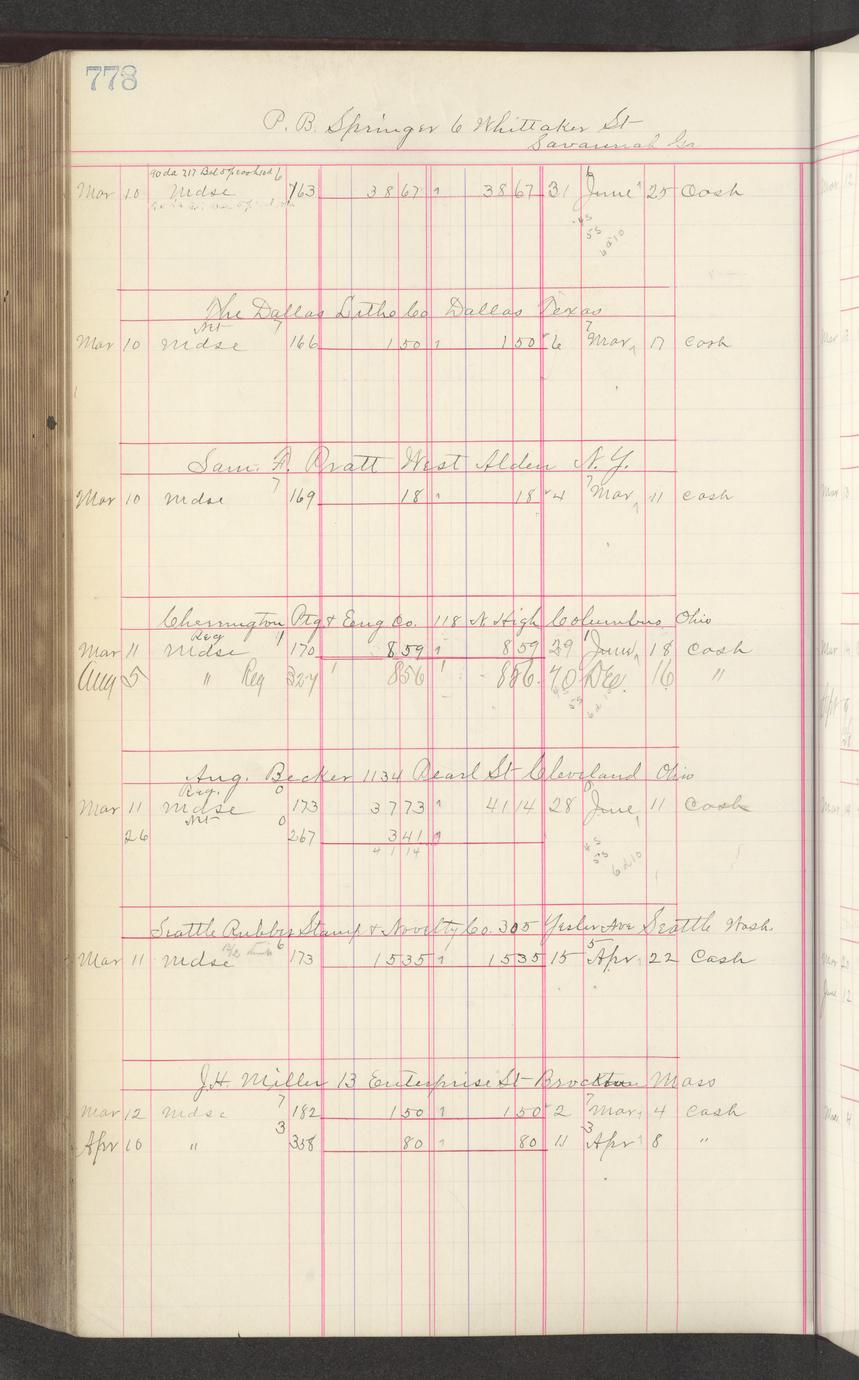 778
P. B. Springer 6 Whittaker St
Savannah Ga
Mar 10 Mdse 6 163 38 67 1 38 67 31 6 June 25 Cash
45
55
6 d 10
The Dallas Litho Co Dallas Texas
Mar 10 Mdse Nt 7 166 1 50 1 1 50 6 7 Mar 17 Cash
Sam. F. Pratt West Alden N.Y.
Mar 10 Mdse 7 169 18 1 18 4 7 Mar 11 Cash
Cherrington Ptg & Eng Co. 118 N High Columbus Ohio
Mar 11 Mdse Reg 1 170 8 59 1 8 59 29 1 June 18 Cash
Aug 5 " Reg 324 1 8 56 1 8 56 70 Dec. 16 "
55
6 d 10
Aug. Becker 1134 Pearl St Cleveland Ohio
Mar 11 Mdse Reg. 0 173 37 73 1 41 14 28 0 June 11 Cash
26 Nt 0 267 3 41 1
41 14
45
55
6 d 10
Seattle Rubber Stamp & Novelty Co. 305 Yesler Ave Seattle Wash.
Mar 11 Mdse 6 173 15 35 1 15 35 15 5 Apr 22 Cash
J. H. Miller 13 Enterprise St Brockton Mass
Mar 12 Mdse 7 182 1 50 1 1 50 2 7 Mar 4 Cash
Apr 10 " 3 358 80 1 80 11 3 Apr 8 "